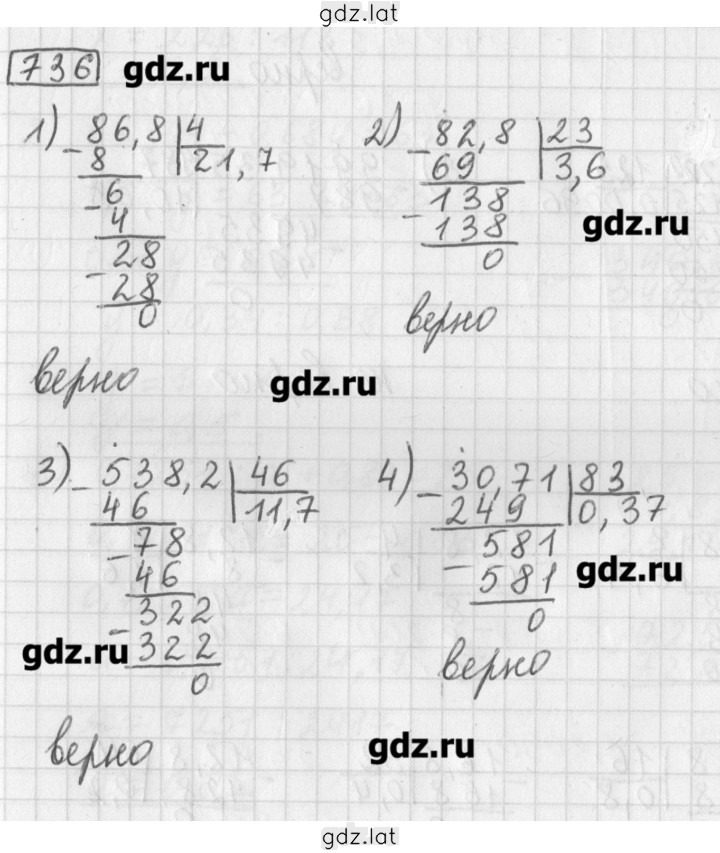 gdz.lat
736 gdz.ru
1) 86,8 | 4
- 8 | 21,7
- 6
4
- 28
28
0
верно
2) 82,8 | 23
- 69 | 3,6
- 138
138
0
gdz.ru
верно
gdz.ru
3) - 538,2 | 46
46 | 11,7
- 78
46
- 322
322
0
gdz.ru
верно
4) - 30,71 | 83
249 | 0,37
- 581
581
0
gdz.ru
верно
gdz.ru
gdz.lat